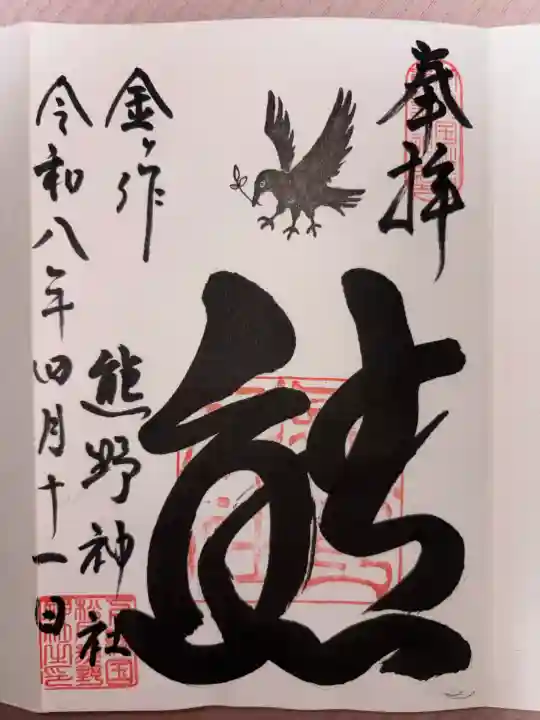 奉拝
熊
金ヶ作 熊野神社
令和八年四月十一日